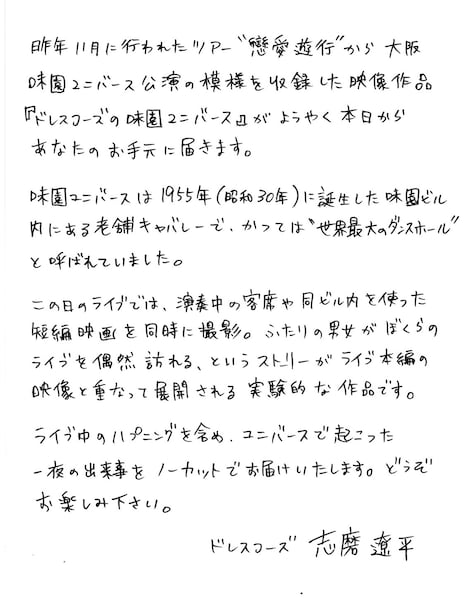 昨年11月に行われたツアー“戀愛遊行”から 大阪
味園ユニバース公演の模様を収録した映像作品
『ドレスコーズの味園ユニバース』が ようやく本日から
あなたのお手元に届きます。
味園ユニバースは1955年(昭和30年)に誕生した味園ビル
内にある老舗キャバレーで、かつては“世界最大のダンスホール”
と呼ばれていました。
この日のライブでは、演奏中の客席や同ビル内を使った
短編映画を同時に撮影。ふたりの男女がぼくらの
ライブを偶然訪れる、というストーリーがライブ本編の
映像と重なって展開される実験的な作品です。
ライブ中のハプニングを含め、ユニバースで起こった
一夜の出来事をノーカットでお届けいたします。どうぞ
お楽しみ下さい。
ドレスコーズ 志磨遼平